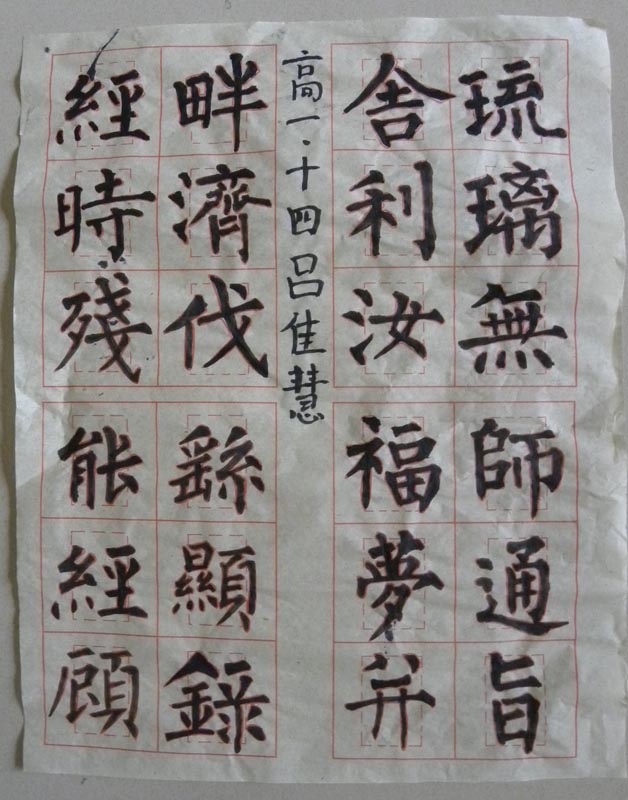 琉璃無師通旨
舍利汝福夢并
高一.十四呂佳慧
畔濟伐繇顯錄
經時殘能經顧